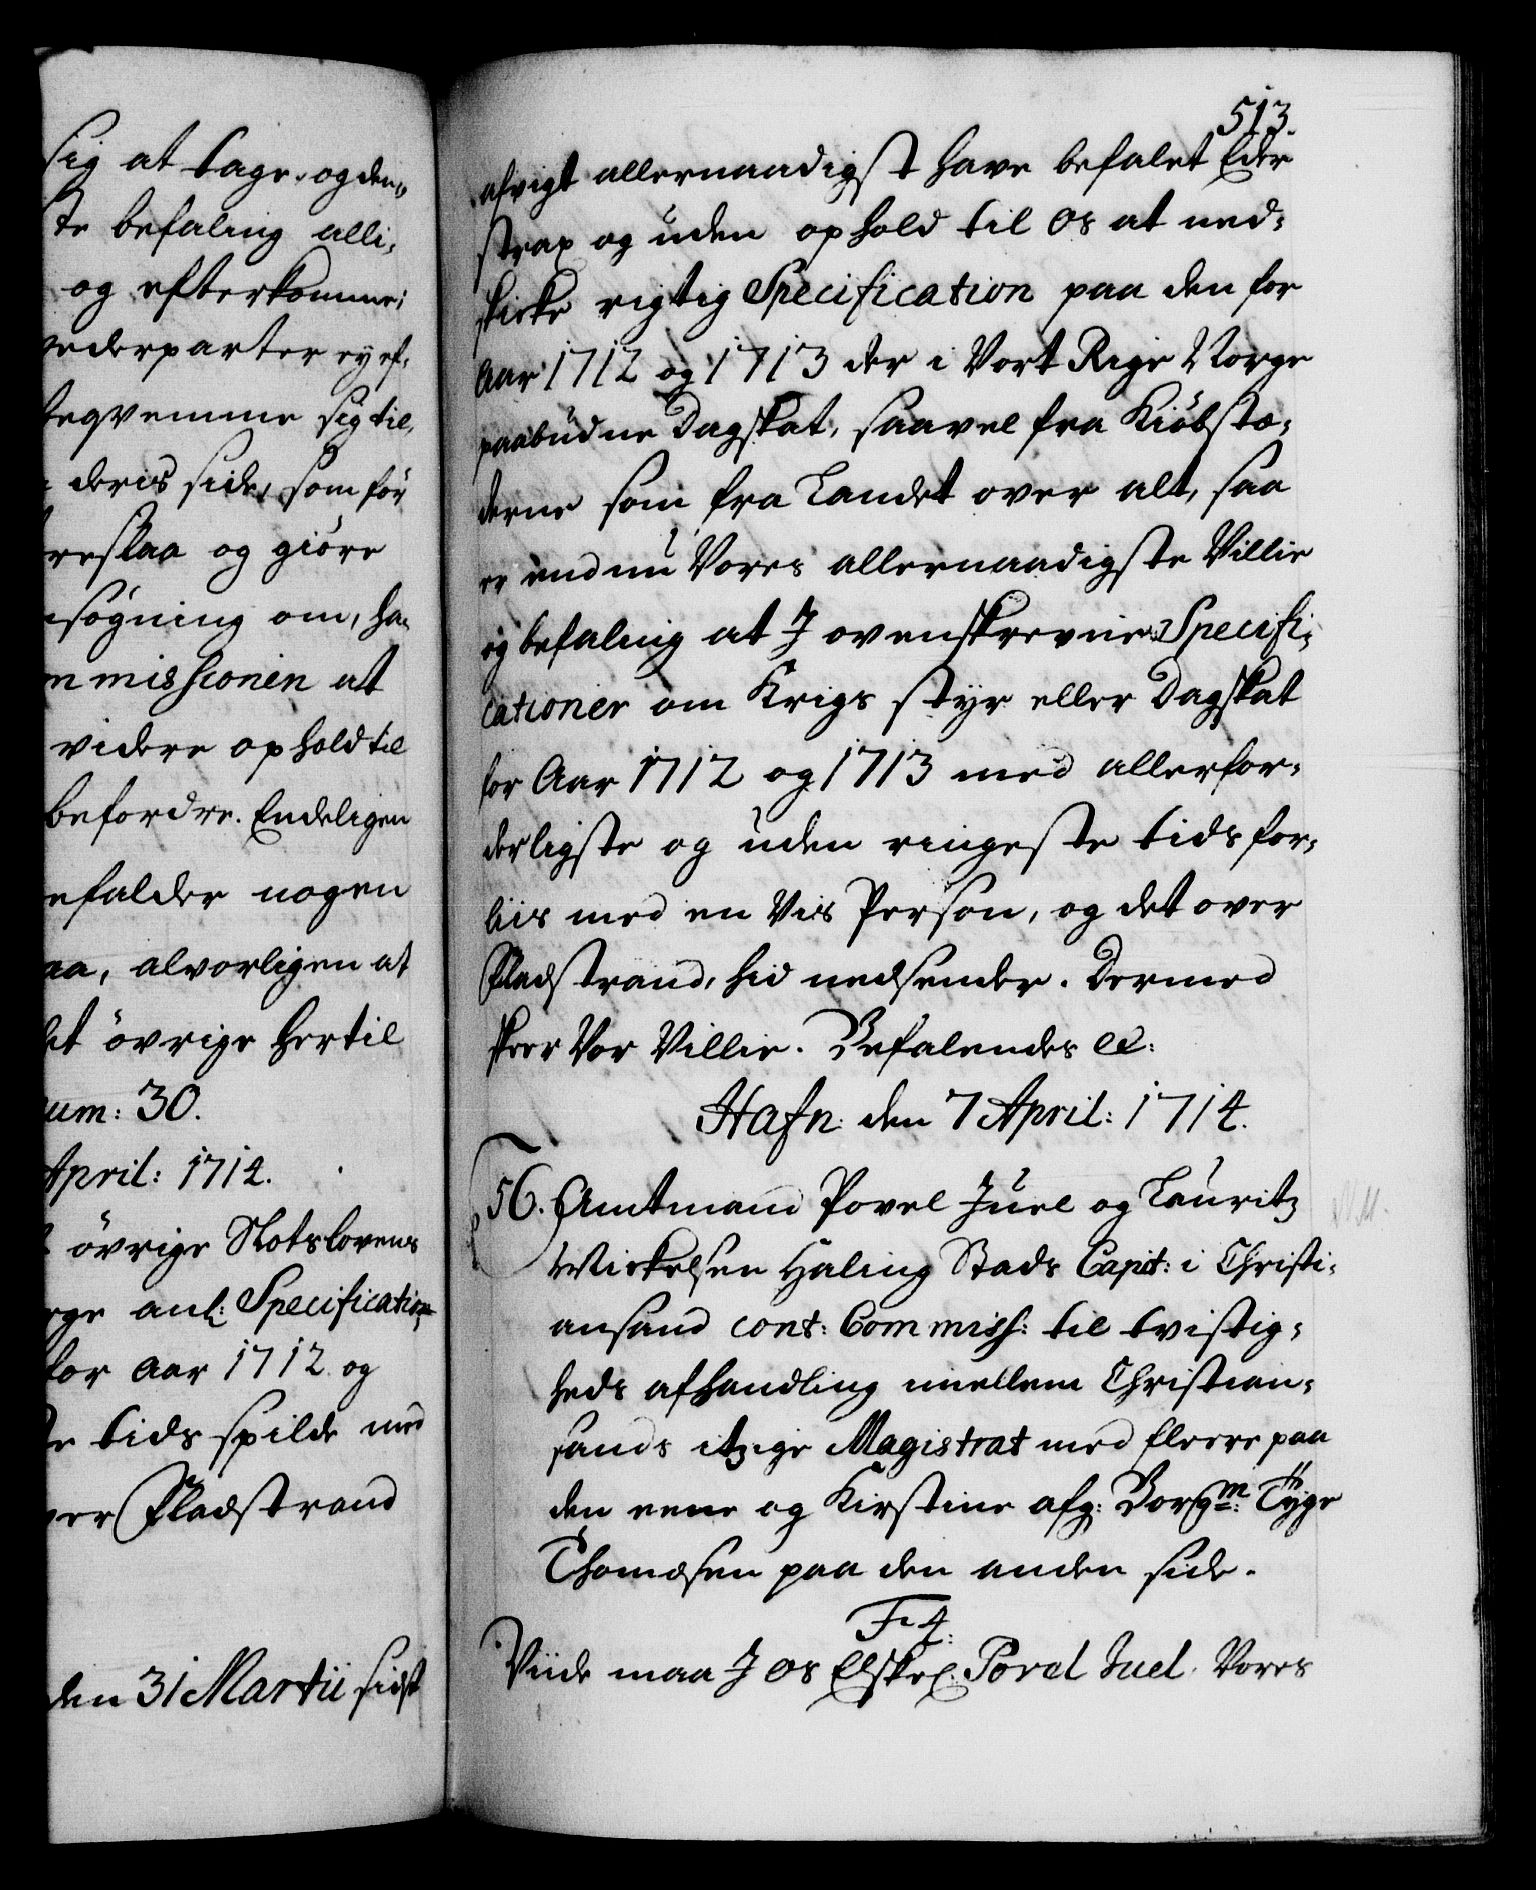 sig at tage, og den„
te befaling alli„
og efterkomme;
vederparter ey ef„
beqvemme sig til,
deris side, som før
reslaa og giöre
søgning om, ha„
mmissionen at
videre ophold til
befordre. Endeligen
efalder nogen
aa, alvorligen at
et övrige hertil
um: 30.
April: 1714.
övrige Slotslovens
rge anl: Specification
for Aar 1712 og
te tids spilde med
ver Fladstrand
den 31 Martii sidst
513.
afvigt allernaadigst have befalet Eder
strax og uden ophold til os at ned„
skicke rigtig Specification paa den for
Aar 1712 og 1713 der i Vort Rige Norge
paabudne Dagskat, saavel fra Kiöbstæ„
derne som fra Landet over alt, saa
er endnu Vores allernaadigste Villie
og befaling at I ovenskrevne Specifi„
cationer om Krigs styr eller Dagskat
for Aar 1712 og 1713 med allerfor„
derligste og uden ringeste tids for„
liis med en Vis Person, og det over
Fladstrand, hid nedsender. Dermed
skeer Vor Villie. Befalendes etc:
Hafn: den 7 April: 1714.
56. Amtmand Povel Juel og Lauritz
Mickelsen Haling Stads Capit: i Christi„
ansand cont: Commiss: til tvistig„
heds afhandling imellem Christian„
sands itzige Magistrat med fleere paa
den eene og Kirstine afg: Borgm: Tyge
Thomæsen paa den anden side.
F. 4.
Viide maa I os Elskel: Povel Juel, Vores